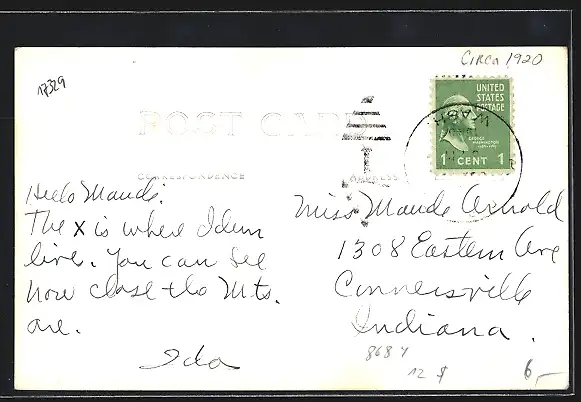 Circa 1920
17329
UNITED
STATES
POSTAGE
GEORGE
WASHINGTON
1 CENT 1
WASH.
POST CARD
CORRESPONDENCE
ADDRESS
Hello Maude:
The X is where Idem
live. You can see
how close the Mts.
are.
Ida
Miss Maude Arnold
1308 Eastern Ave
Connersville
Indiana.
8684
12 $
6,-